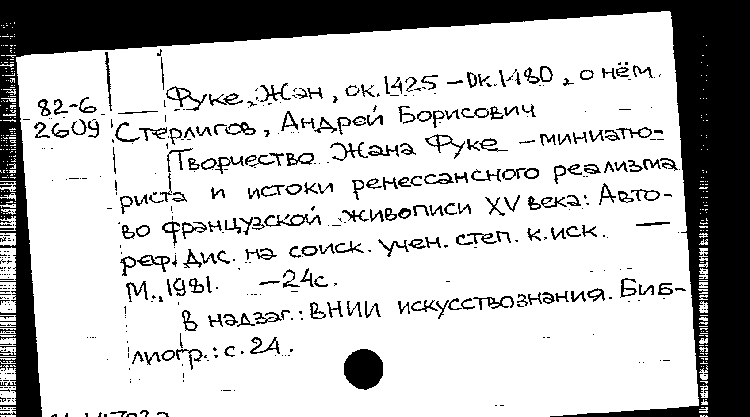 82-6 Фуке, Жан, ок. 1425 – ок. 1480, о нём.
2609 Стерлигов, Андрей Борисович
Творчество Жана Фуке – миниатю-
риста и истоки ренессансного реализма
во французской живописи XV века: Авто-
реф. Дис. на соиск. учен. степ. к. иск. —
М., 1981. – 24 с.
В надзаг.: ВНИИ искусствознания. Биб-
лиогр.: с. 24.